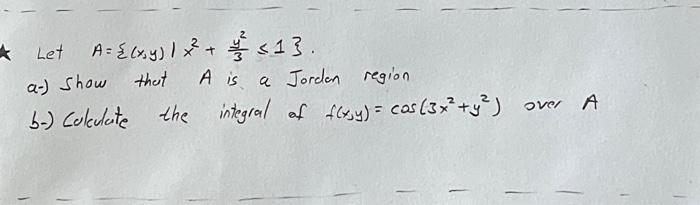 ★ Let A = {(x,y) | x² + y²/3 ≤ 1}.
a-) Show that A is a Jordan region
b-) Calculate the integral of f(x,y) = cos(3x² + y²) over A